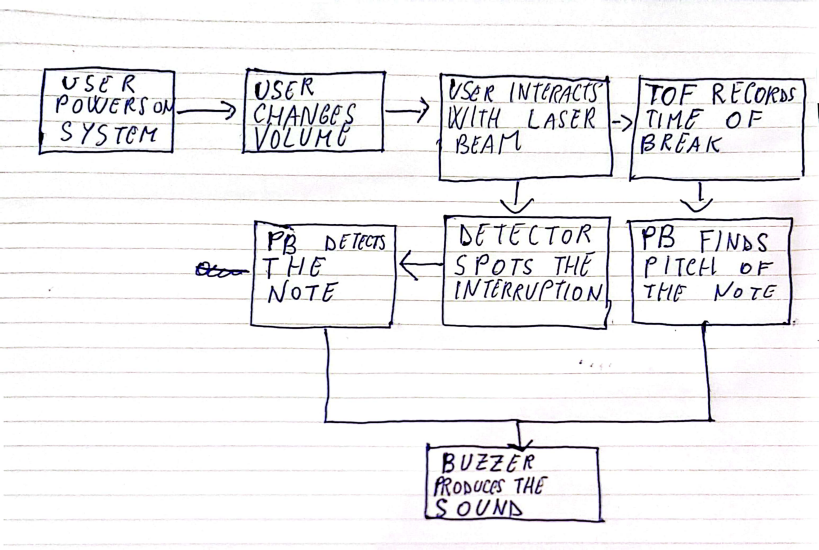 USER
POWERS ON
SYSTEM
USER
CHANGES
VOLUME
USER INTERACTS
WITH LASER
BEAM
TOF RECORDS
TIME OF
BREAK
PB DETECTS
THE
NOTE
DETECTOR
SPOTS THE
INTERRUPTION
PB FINDS
PITCH OF
THE NOTE
BUZZER
PRODUCES THE
SOUND